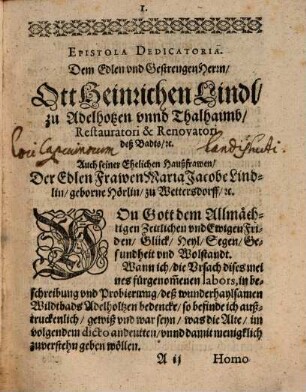 1.
EPISTOLA DEDICATORIA.
Dem Edlen vnd Gestrengen Herrn/
Ott Heinrichen Lindl/
zu Adelhotzen vnnd Thalhaimb/
Restauratori & Renovatori
deß Badts/ıc.
Loci Capucinorum Landishuti.
Auch seiner Ehelichen Haußfrawen/
Der Edlen Frawen Maria Jacobe Lind-
lin/ geborne Hörlin/ zu Wettersdorff/ ıc.
VOn Gott dem Allmäch-
tigen Zeitlichen vnd Ewigen Fri-
den/ Glück/ Heyl/ Segen/ Ge-
sundheit vnd Wolstandt.
Wann ich/ die Vrsach dises mei
nes fürgenom̃enen labors, in be-
schreibung vnd Probierung/ deß wunderhaylsamen
Wildbads Adelholtzen bedencke/ so befinde ich auß-
truckenlich/ gewiß vnd war seyn/ was die Alte/ im
volgendem dicto andeutten/ vnnd damit menigklich
zuverstehn geben wöllen.
A ij
Homo